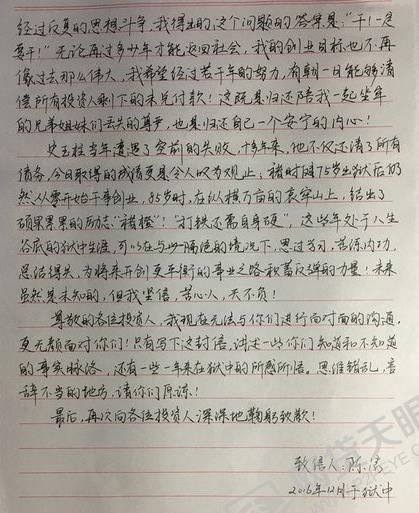 经过反复的思想斗争，我得出的这个问题的答案是："干！一定
要干！"无论再过多少年才能返回社会，我的创业目标也不再
像过去那么伟大，我希望经过若干年的努力，有朝一日能够清
偿所有投资人剩下的未兑付款！这既是归还陪我一起坐牢
的兄弟姐妹们丢失的尊严，也是归还自己一个安宁的内心！
史玉柱当年遭遇了空前的失败，十多年来，他不仅还清了所有
债务，今日取得的成绩更是令人叹为观止；褚时健75岁出狱后仍
然从零开始干事创业，85岁时，在纵横万亩的哀牢山上，结出了
硕果累累的励志"褚橙"！"打铁还需自身硬"，这些年处于人生
谷底的狱中生涯，可以在与世隔绝的情况下，思过省身，苦练内功，
总结得失，为将来开创更平衡的事业之路积蓄反弹的力量！未来
虽然是未知的，但我坚信，苦心人，天不负！
尊敬的各位投资人，我现在无法与你们进行面对面的沟通，
更无颜面对你们！只有写下这封信，讲述一些你们知道和不知道
的事实脉络，还有一些一年来在狱中的所感所悟。思维错乱，言
辞不当的地方，请你们原谅！
最后，再次向各位投资人深深地鞠躬致歉！
致信人：陈
2016年12月于狱中